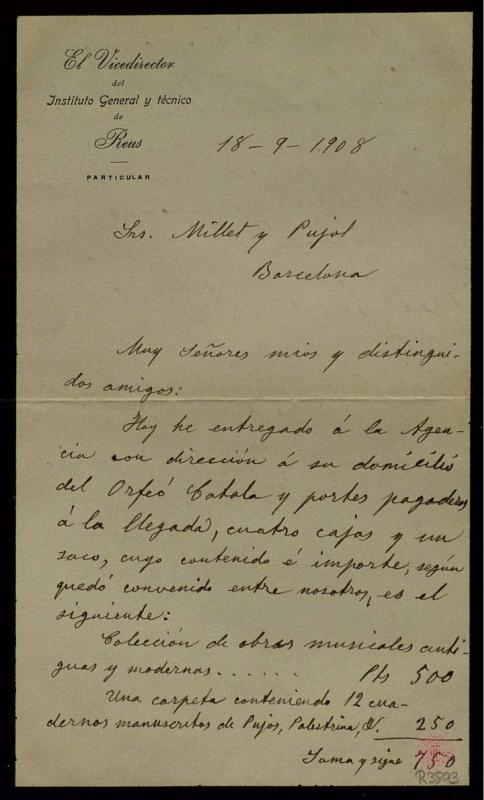 El Vicedirector
del
Instituto General y técnico
de
Reus
PARTICULAR
18-9-1908
Srs. Millet y Pujol
Barcelona
Muy Señores mios y distingui-
dos amigos:
Hoy he entregado á la Agen-
cia con dirección á su domicilio
del Orfeó Catala y portes pagaderos
á la llegada, cuatro cajas y un
saco, cuyo contenido é importe, según
quedó convenido entre nosotros, es el
siguiente:
Colección de obras musicales anti-
guas y modernas...... Pts 500
Una carpeta conteniendo 12 cua-
dernos manuscritos de Pujos, Palestrina, &. 250
Suma y sigue 750
R3593